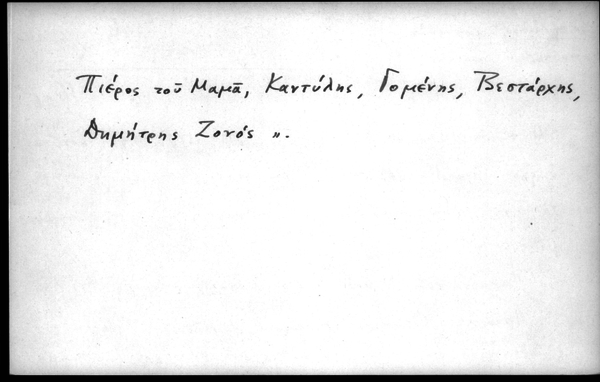 Πιέρος τοῦ Μαμᾶ, Καντύλης, Γομένης, Βεστάρχης,
Δημήτρης Ζονός ».